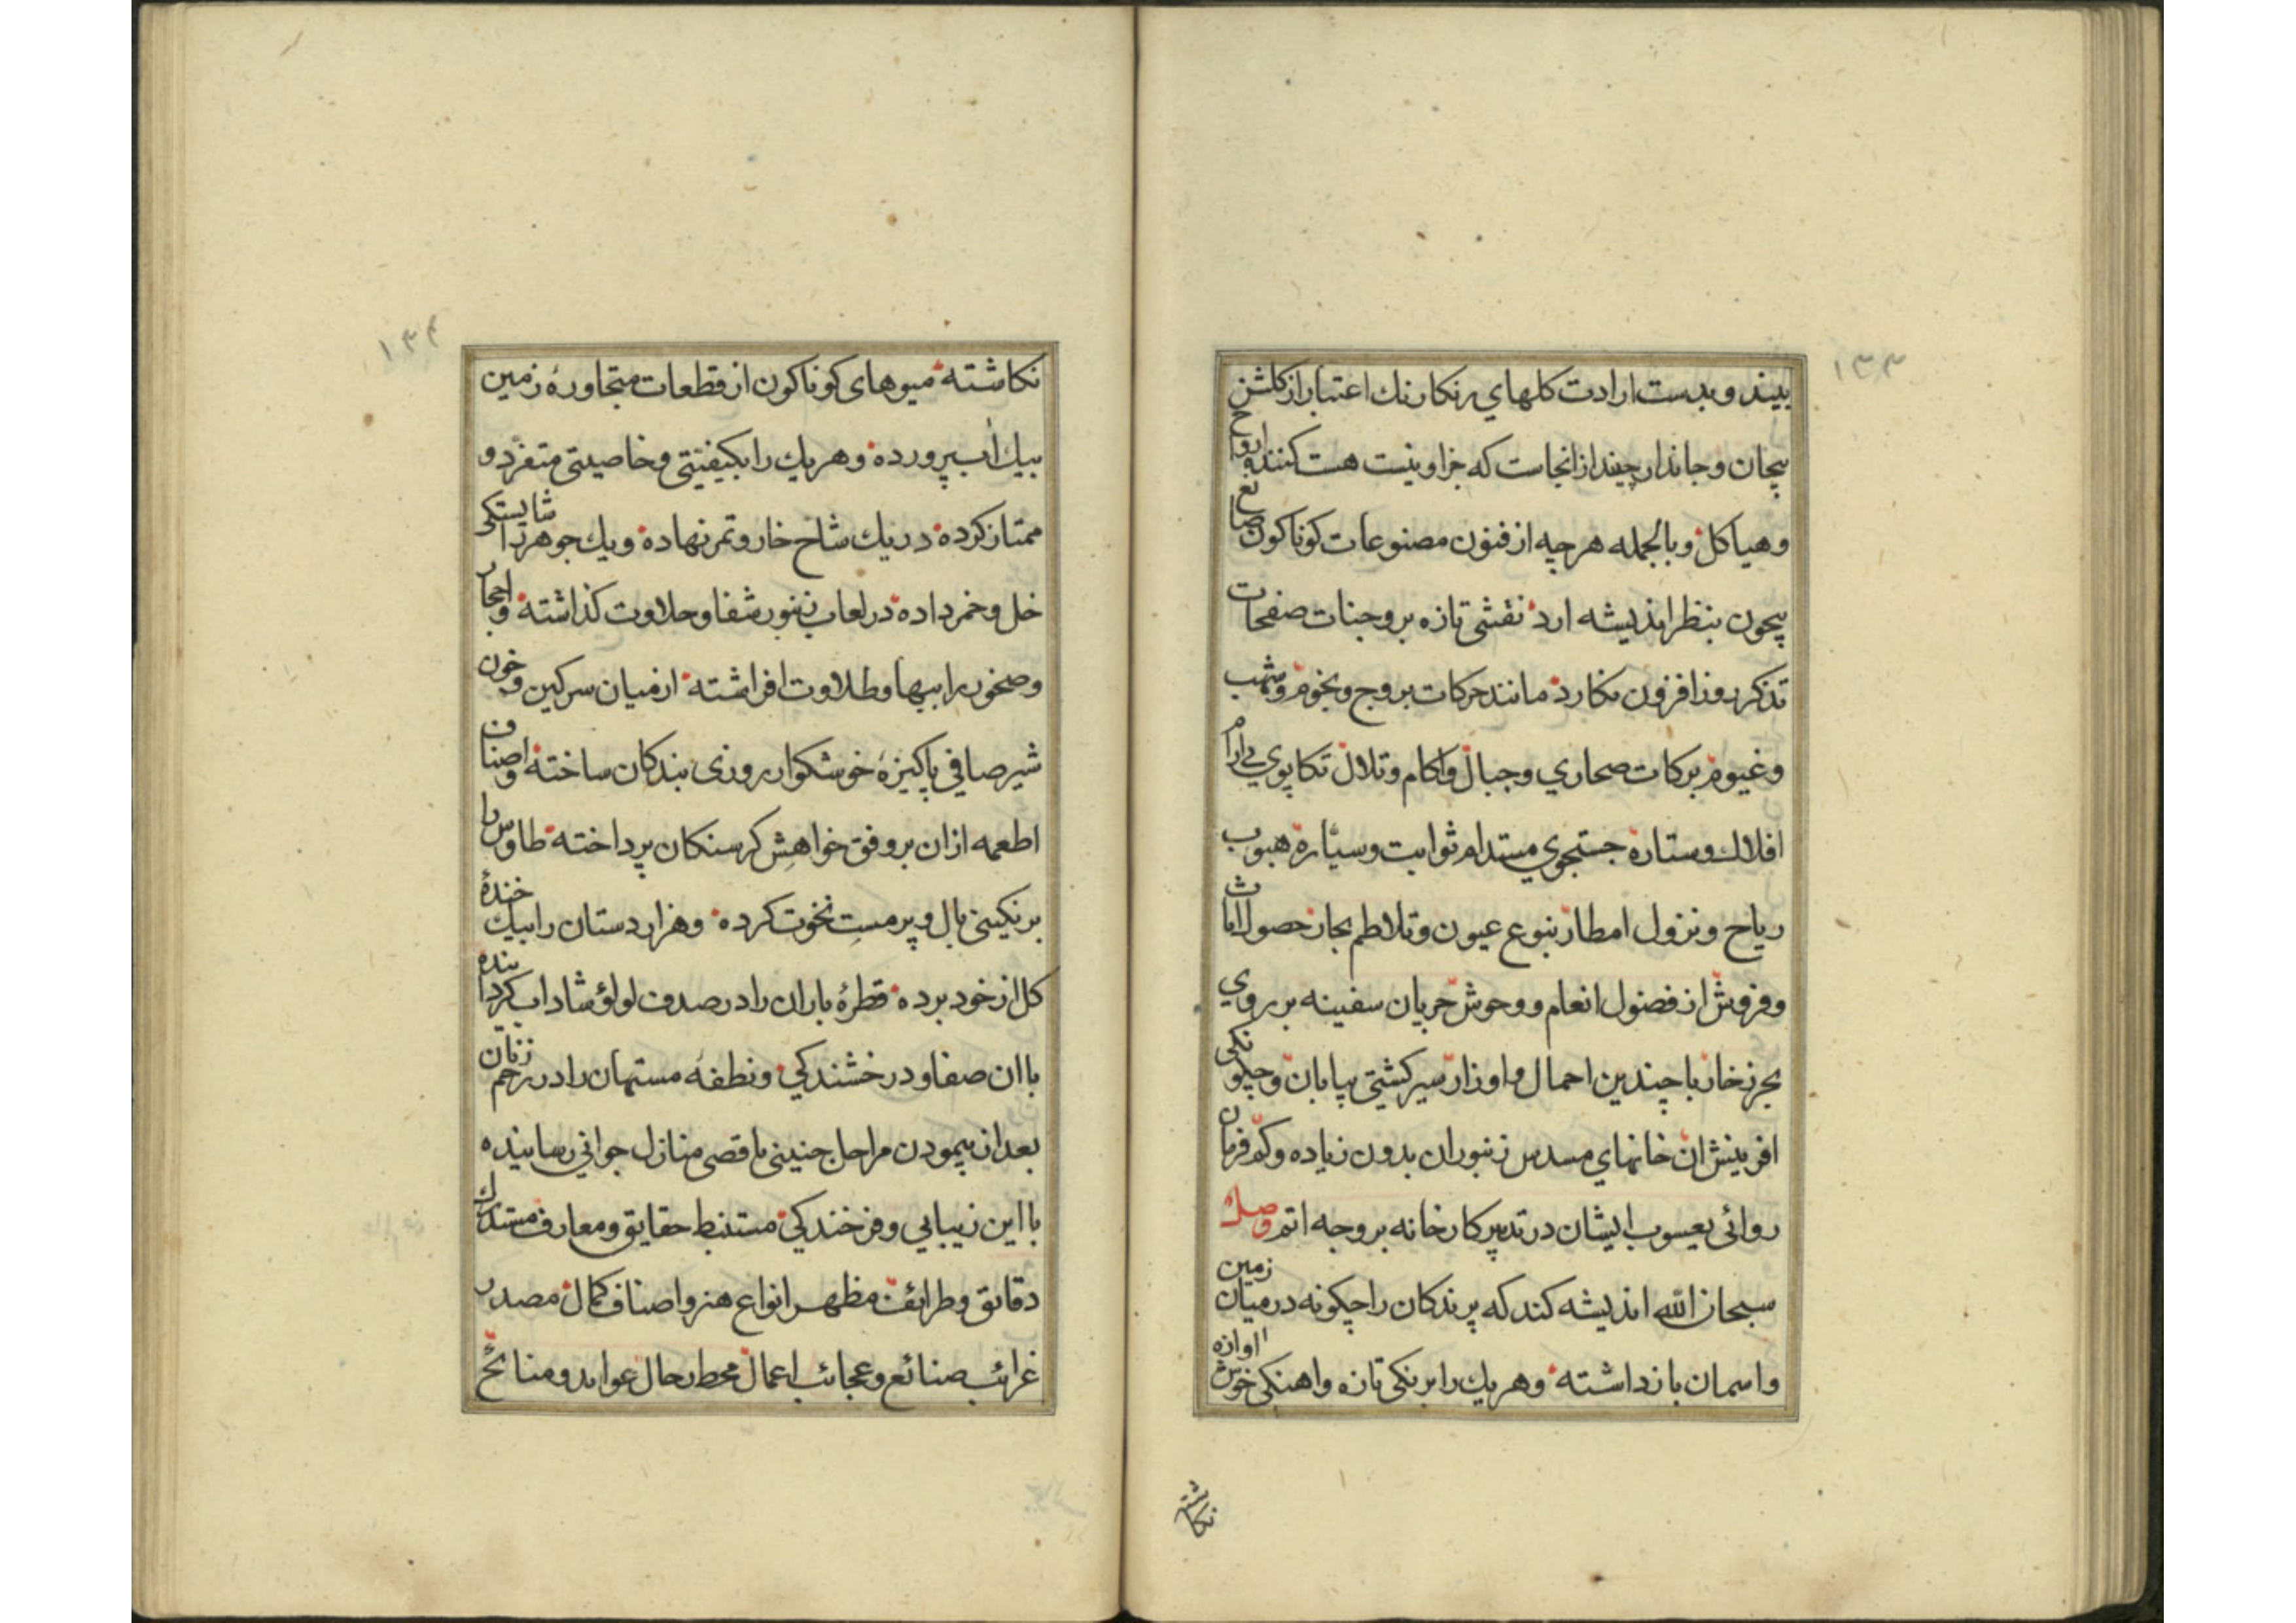 ۱۳۳
بیند و بدست ارادت کلهاي رنکارنك اعتبار از کلشن
بیجان و جاندار چیند از انجاست که جز او نیست هست کننده ارواح
و هیاکل و بالجمله هرچه از فنون مصنوعات کوناکون صانع
بیچون بنظر اندیشه ارد نقشی تازه بر وجنات صفحات
تذکر روز افزون نکارد مانند حرکات بروج و نجوم و شهب
و غیوم برکات صحاري و جبال و اکام و تلال تکاپوي بي ارام
افلاك و ستاره جستجوي مستدام ثوابت و سیاره هبوب
ریاح و نزول امطار نبوع عیون و تلاطم بحار حصول اثاث
و فروش از فضول انعام و وحوش جریان سفینه بر روي
بحر زخار با چندین احمال و اوزار سیر کشتی بیابان و چکونکی
افرینش ان خانهاي مسدس زنبوران بدون زیاده و کم فرمان
روائی یعسوب ایشان در تدبیر کارخانه بر وجه اتم وصل
سبحان الله اندیشه کند که پرندکان را چکونه در میان زمین
و اسمان باز داشته و هر یك را برنکی تازه و اهنکی خوش اوازه
نکاشته
۱۳۴
نکاشته میوهای کوناکون از قطعات متجاورۀ زمین
بیك اب پرورده و هر یك را بکیفیتی و خاصیتی متفرد و
ممتاز کرده در یك شاخ خار و تمر نهاده و یك جوهر را شایستکی
خل و خمر داده در لعاب زنبور شفا و حلاوت کذاشته و احجار
و صخور را ببها و طلاوت افراشته از میان سرکین و خون
شیر صافي پاکیزۀ خوشکوار روزی بندکان ساخته و اصناف
اطعمه از ان بر وفق خواهش کرسنکان پرداخته طاوس را
برنکینی بال و پر مست نخوت کرده و هزار دستان را بیك خندۀ
کل از خود برده قطرۀ باران را در صدف لولوٴ شاداب کرداننده
با ان صفا و درخشندکي و نطفۀ مستهان را در رحم زنان
بعد از پیمودن مراحل جنینی باقصی منازل جواني رسانیده
با این زیبایي و فرخندکي مستنبط حقایق و معارف مستدرك
دقایق و طرائف مظهر انواع هنر و اصناف کمال مصدر
غرائب صنائع و عجائب اعمال محط رحال عواید و منائح